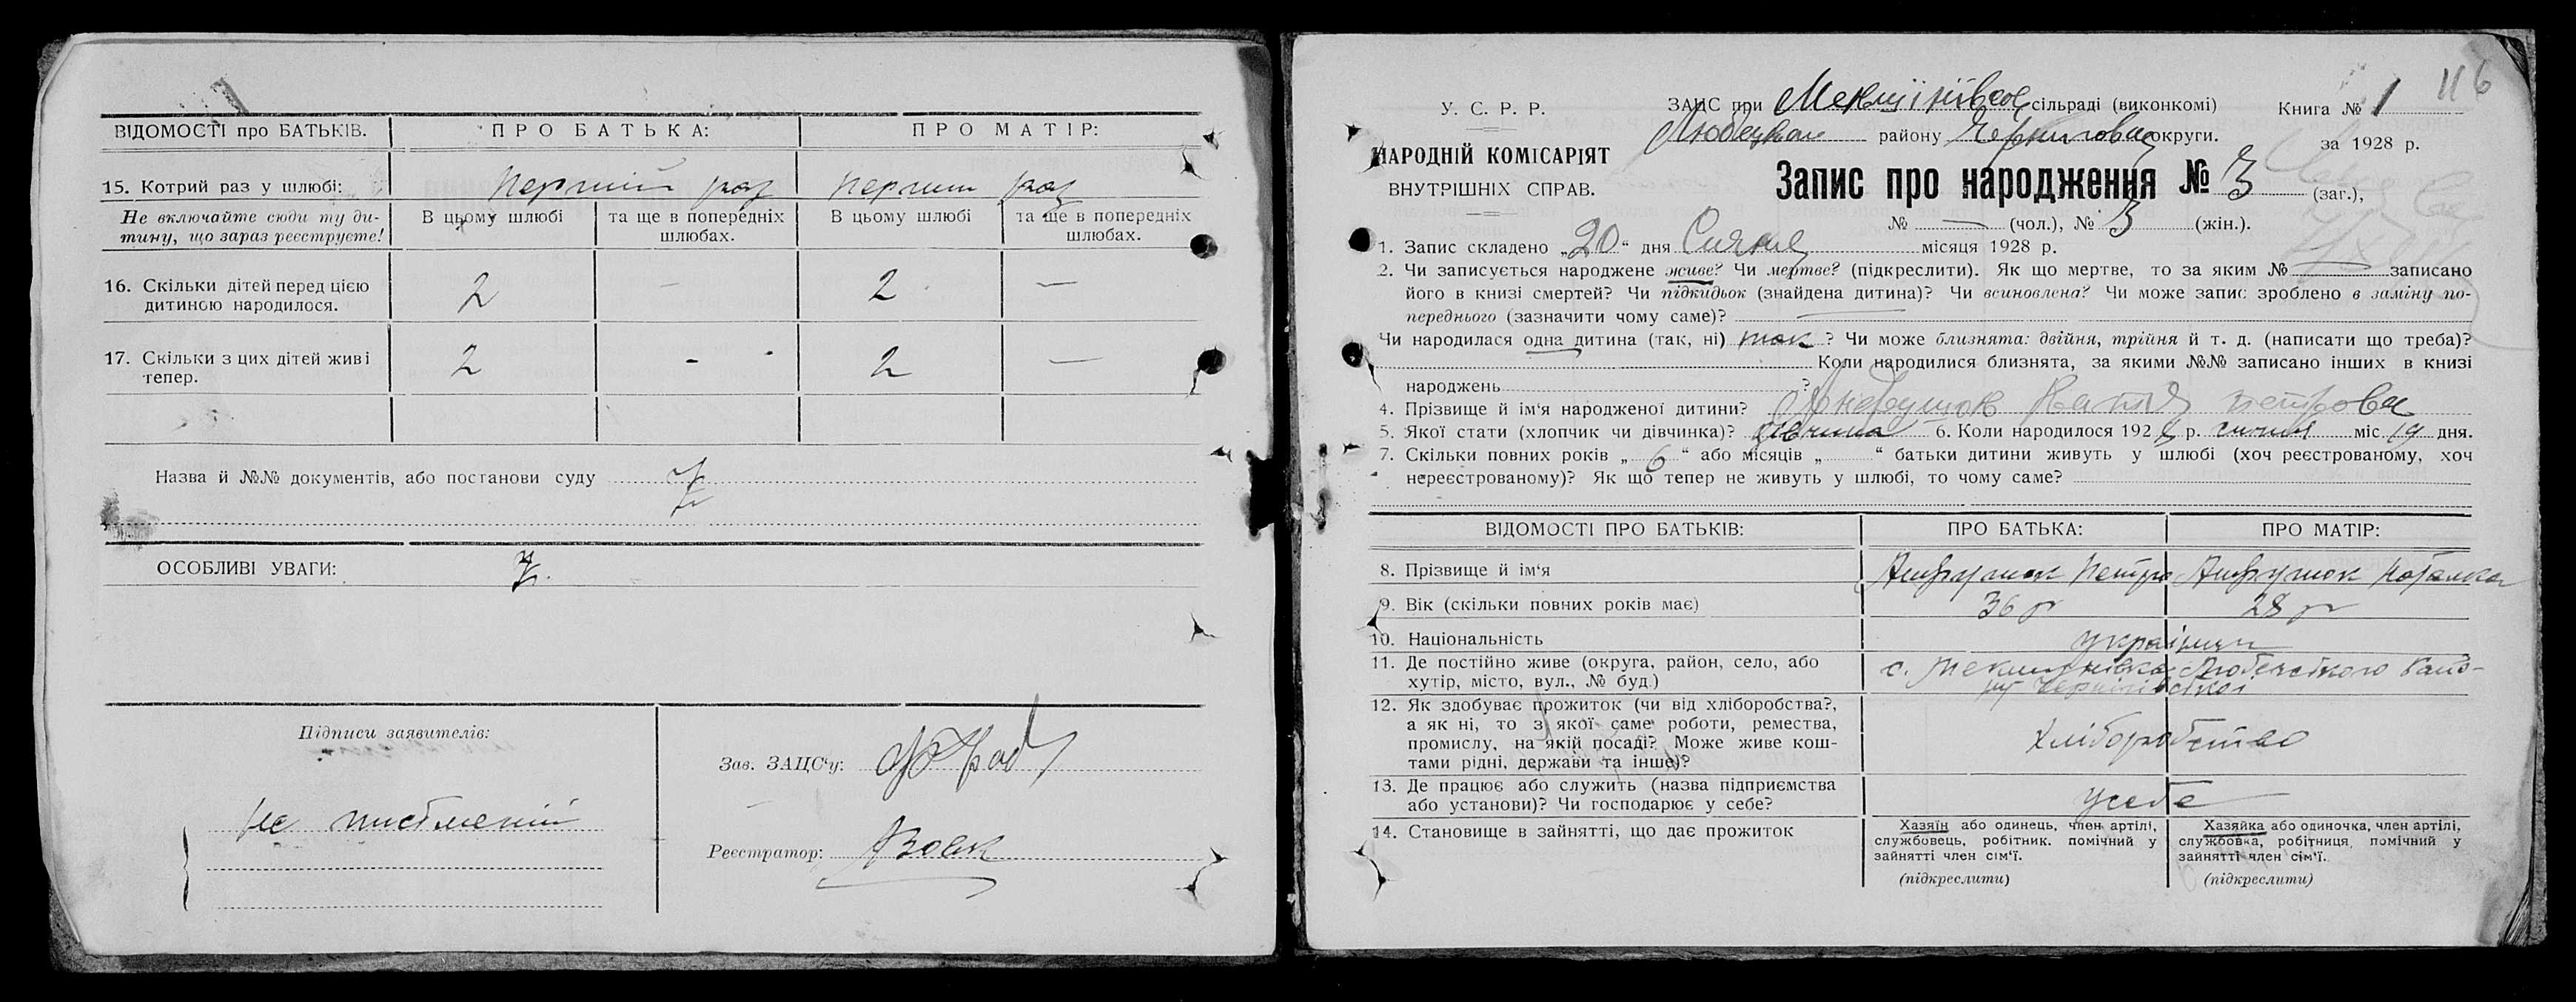 ВІДОМОСТІ про БАТЬКІВ. ПРО БАТЬКА: ПРО МАТІР:
15. Котрий раз у шлюбі: перший раз перший раз
Не включайте сюди ту ди-
тину, що зараз реєструєте!
В цьому шлюбі та ще в попередніх шлюбах. В цьому шлюбі та ще в попередніх шлюбах.
16. Скільки дітей перед цією
дитиною народилося. 2 — 2 —
17. Скільки з цих дітей живі
тепер. 2 - 2 —
Назва й №№ документів, або постанови суду
ОСОБЛИВІ УВАГИ:
Підписи заявителів:
не письмений
Зав. ЗАЦС'у:
Реєстратор: Вовк
116
У. С. Р. Р.
НАРОДНІЙ КОМІСАРІЯТ
ВНУТРІШНІХ СПРАВ.
ЗАЦС при сільраді (виконкомі)
Любецком району округи.
Книга № 1
за 1928 р.
Запис про народження № 3 (заг.),
№ — (чол.), № 3 (жін.).
1. Запис складено „20“ дня Сичня місяця 1928 р.
2. Чи записується народжене живе? Чи мертве? (підкреслити). Як що мертве, то за яким № — записано
його в книзі смертей? Чи підкидьок (знайдена дитина)? Чи всиновлена? Чи може запис зроблено в заміну по-
переднього (зазначити чому саме)? —
Чи народилася одна дитина (так, ні) так? Чи може близнята: двійня, трійня й т. д. (написати що треба)?
Коли народилися близнята, за якими №№ записано інших в книзі
народжень ?
4. Прізвище й ім'я народженої дитини? Петрова
5. Якої стати (хлопчик чи дівчинка)? дівчина 6. Коли народилося 1928 р. сичня міс 19 дня.
7. Скільки повних років „6“ або місяців „ “ батьки дитини живуть у шлюбі (хоч реєстрованому, хоч
нереєстрованому)? Як що тепер не живуть у шлюбі, то чому саме?
ВІДОМОСТІ ПРО БАТЬКІВ: ПРО БАТЬКА: ПРО МАТІР:
8. Прізвище й ім'я Андрушок Петро Андрушок Наталка
9. Вік (скільки повних років має) 36 р 28 р
10. Національність українци
11. Де постійно живе (округа, район, село, або
хутір, місто, вул., № буд.) с. Любецького Райо-
12. Як здобуває прожиток (чи від хліборобства?,
а як ні, то з якої саме роботи, ремества,
промислу, на якій посаді? Може живе кош-
тами рідні, держави та інше)? Хліборобство
13. Де працює або служить (назва підприємства
або установи)? Чи господарює у себе? у себе
14. Становище в зайнятті, що дає прожиток
Хазяїн або одинець, член артілі,
службовець, робітник. помічний у
зайнятті член сім'ї.
(підкреслити)
Хазяйка або одиночка, член артілі,
службовка, робітниця, помічний у
зайнятті член сім'ї.
(підкреслити)